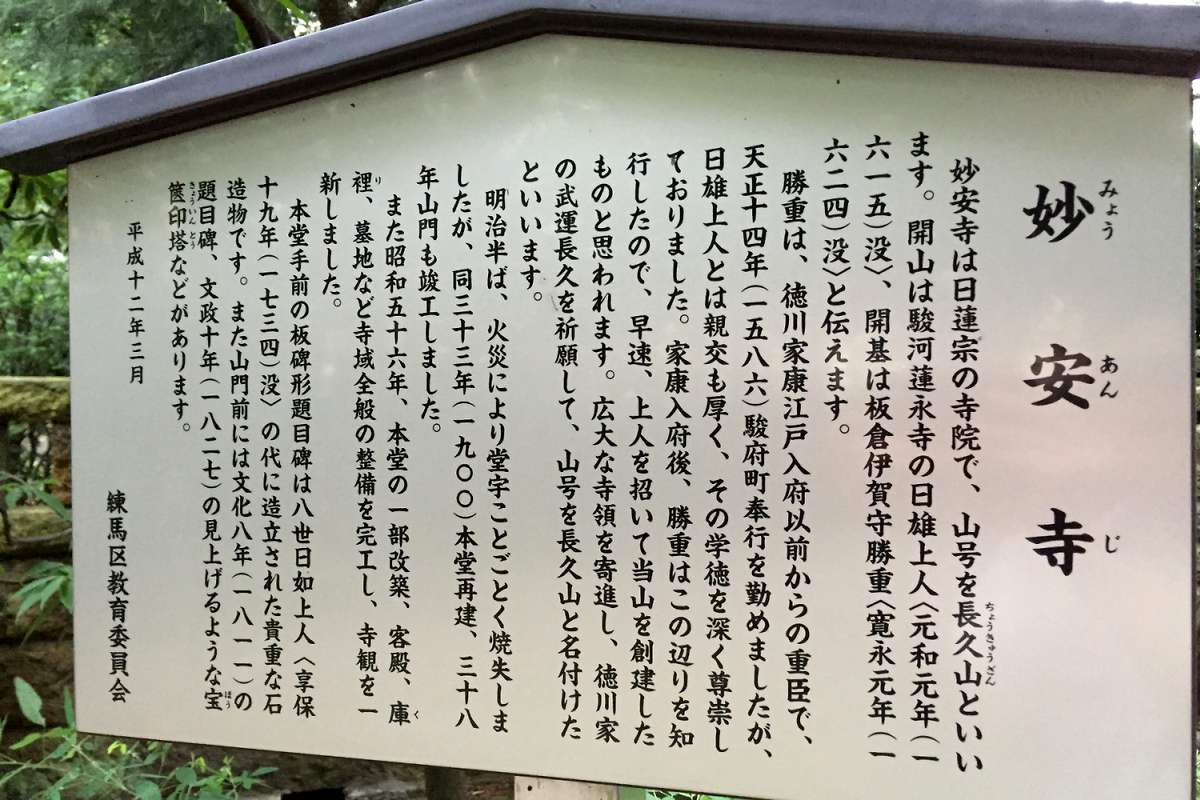 妙安寺
みょうあんじ
妙安寺は日蓮宗の寺院で、山号を長久山といい
ちょうきゅうざん
ます。開山は駿河蓮永寺の日雄上人〈元和元年(一
六一五)没〉、開基は板倉伊賀守勝重〈寛永元年(一
六二四)没〉と伝えます。
勝重は、徳川家康江戸入府以前からの重臣で、
天正十四年(一五八六)駿府町奉行を勤めましたが、
日雄上人とは親交も厚く、その学徳を深く尊崇し
ておりました。家康入府後、勝重はこの辺りを知
行したので、早速、上人を招いて当山を創建した
ものと思われます。広大な寺領を寄進し、徳川家
の武運長久を祈願して、山号を長久山と名付けた
といいます。
明治半ば、火災により堂宇ことごとく焼失しま
したが、同三十三年(一九〇〇)本堂再建、三十八
年山門も竣工しました。
また昭和五十六年、本堂の一部改築、客殿、庫
く
裡、墓地など寺域全般の整備を完工し、寺観を一
り
新しました。
本堂手前の板碑形題目碑は八世日如上人〈享保
十九年(一七三四)没〉の代に造立された貴重な石
造物です。また山門前には文化八年(一八一一)の
題目碑、文政十年(一八二七)の見上げるような宝
ほう
篋印塔などがあります。
きょういんとう
平成十二年三月
練馬区教育委員会